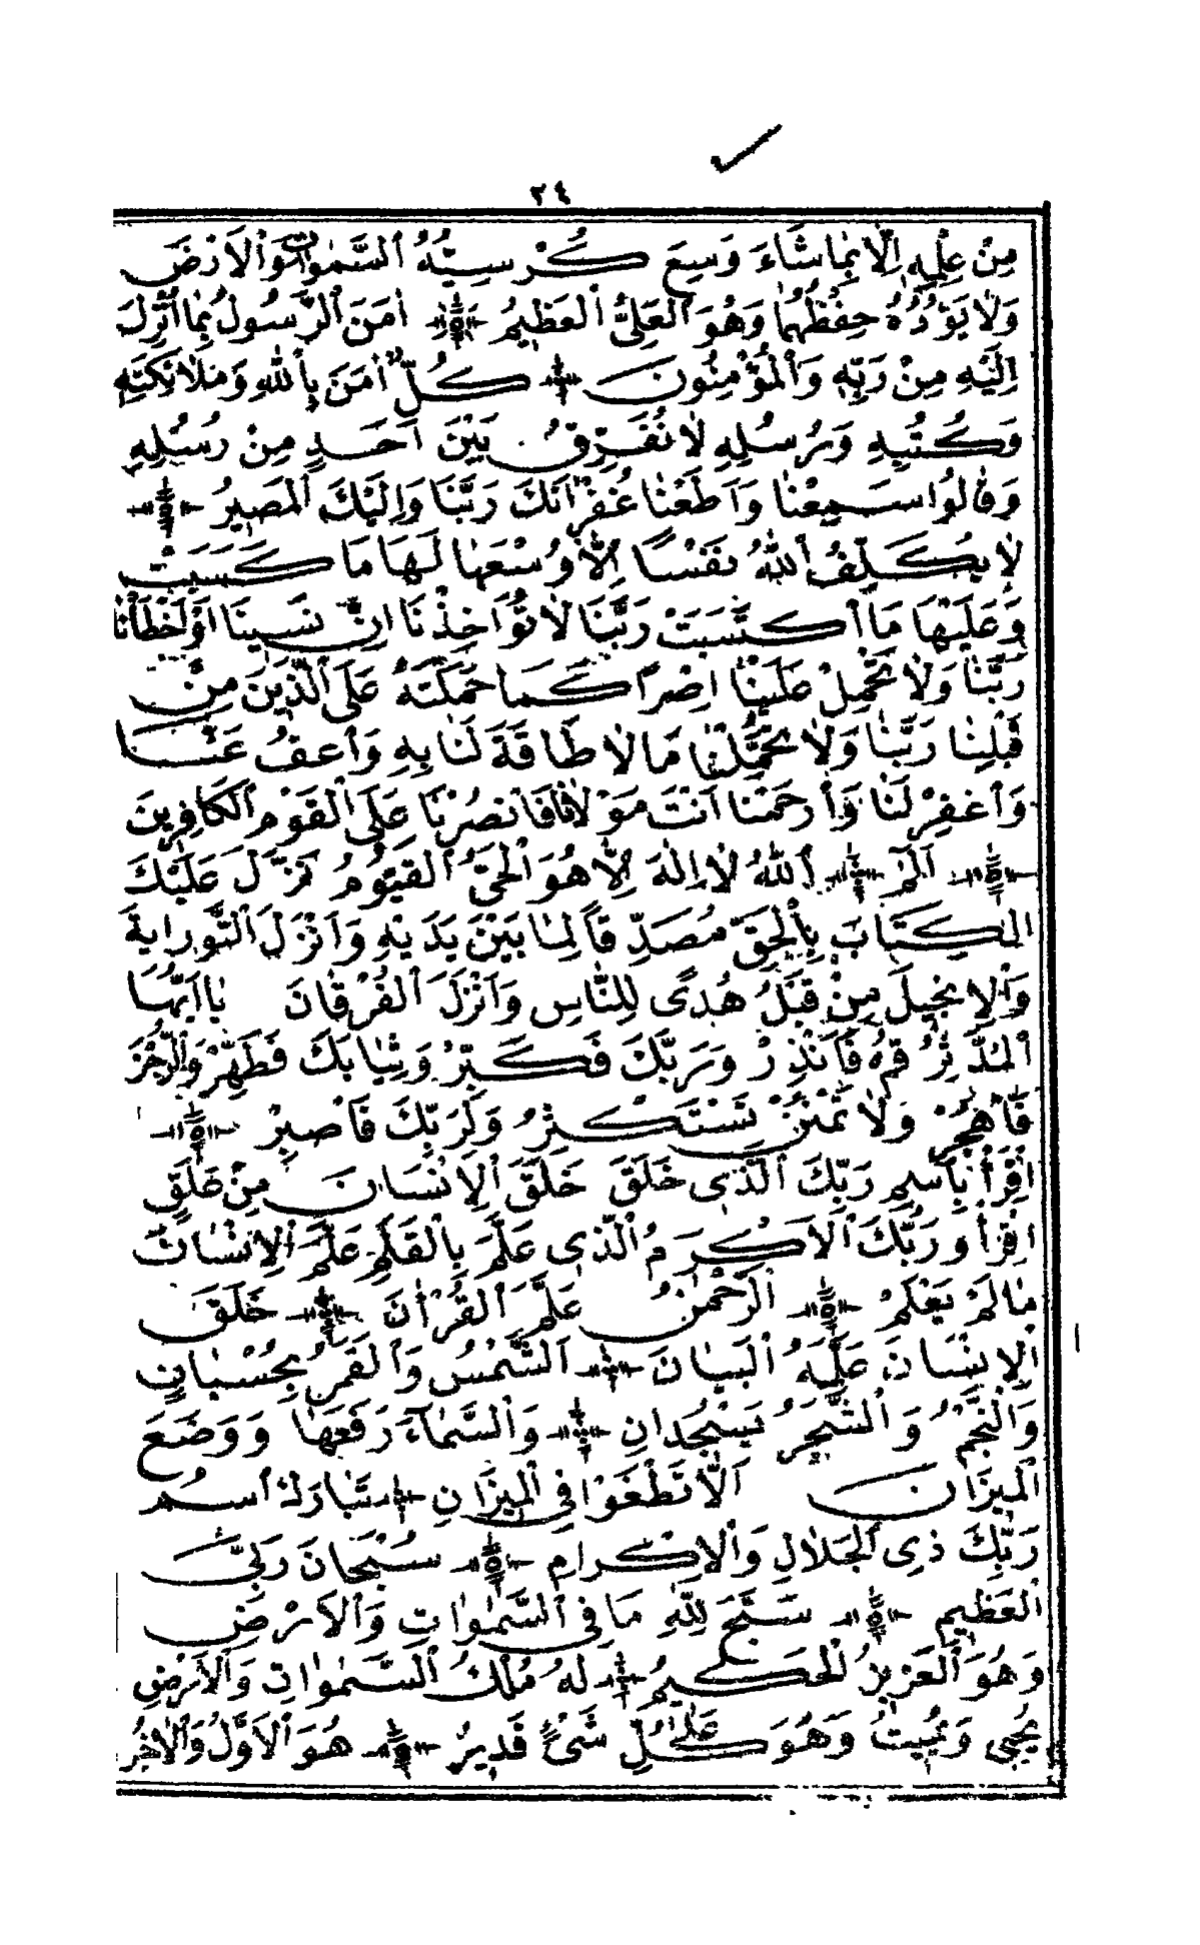 ٣٤
مِنْ عِلْمِهِ اِلَّا بِمَا شَاءَ وَسِعَ كُرْسِيُّهُ ٱلسَّمٰوَاتِ وَٱلْاَرْضَ
وَلَا يَؤُدُهُ حِفْظُهُمَا وَهُوَ ٱلْعَلِىُّ ٱلْعَظِيمُ اٰمَنَ ٱلرَّسُولُ بِمَا اُنْزِلَ
اِلَيْهِ مِنْ رَبِّهِ وَٱلْمُؤْمِنُونَ كُلٌّ اٰمَنَ بِٱللّٰهِ وَمَلَائِكَتِهِ
وَكُتُبِهِ وَرُسُلِهِ لَا نُفَرِّقُ بَيْنَ اَحَدٍ مِنْ رُسُلِهِ
وَقَالُوا سَمِعْنَا وَاَطَعْنَا غُفْرَانَكَ رَبَّنَا وَاِلَيْكَ ٱلْمَصِيرُ
لَا يُكَلِّفُ ٱللّٰهُ نَفْسًا اِلَّا وُسْعَهَا لَهَا مَا كَسَبَتْ
وَعَلَيْهَا مَا ٱكْتَسَبَتْ رَبَّنَا لَا تُؤَاخِذْنَا اِنْ نَسِينَا اَوْ اَخْطَأْنَا
رَبَّنَا وَلَا تَحْمِلْ عَلَيْنَا اِصْرًا كَمَا حَمَلْتَهُ عَلَى ٱلَّذِينَ مِنْ
قَبْلِنَا رَبَّنَا وَلَا تُحَمِّلْنَا مَا لَا طَاقَةَ لَنَا بِهِ وَٱعْفُ عَنَّا
وَٱغْفِرْ لَنَا وَٱرْحَمْنَا اَنْتَ مَوْلَانَا فَانْصُرْنَا عَلَى ٱلْقَوْمِ ٱلْكَافِرِينَ
الٓمٓ ٱللّٰهُ لَا اِلٰهَ اِلَّا هُوَ ٱلْحَىُّ ٱلْقَيُّومُ نَزَّلَ عَلَيْكَ
ٱلْكِتَابَ بِٱلْحَقِّ مُصَدِّقًا لِمَا بَيْنَ يَدَيْهِ وَاَنْزَلَ ٱلتَّوْرَايةَ
وَٱلْاِنْجِيلَ مِنْ قَبْلُ هُدًى لِلنَّاسِ وَاَنْزَلَ ٱلْفُرْقَانَ يَا اَيُّهَا
ٱلْمُدَّثِّرُ قُمْ فَاَنْذِرْ وَرَبَّكَ فَكَبِّرْ وَثِيَابَكَ فَطَهِّرْ وَٱلرُّجْزَ
فَٱهْجُرْ وَلَا تَمْنُنْ تَسْتَكْثِرُ وَلِرَبِّكَ فَٱصْبِرْ
اِقْرَأْ بِٱسْمِ رَبِّكَ ٱلَّذِى خَلَقَ خَلَقَ ٱلْاِنْسَانَ مِنْ عَلَقٍ
اِقْرَأْ وَرَبُّكَ ٱلْاَكْرَمُ ٱلَّذِى عَلَّمَ بِٱلْقَلَمِ عَلَّمَ ٱلْاِنْسَانَ
مَا لَمْ يَعْلَمْ ٱلرَّحْمٰنُ عَلَّمَ ٱلْقُرْاٰنَ خَلَقَ
ٱلْاِنْسَانَ عَلَّمَهُ ٱلْبَيَانَ ٱلشَّمْسُ وَٱلْقَمَرُ بِحُسْبَانٍ
وَٱلنَّجْمُ وَٱلشَّجَرُ يَسْجُدَانِ وَٱلسَّمَآءَ رَفَعَهَا وَوَضَعَ
ٱلْمِيزَانَ اَلَّا تَطْغَوْا فِى ٱلْمِيزَانِ تَبَارَكَ ٱسْمُ
رَبِّكَ ذِى ٱلْجَلَالِ وَٱلْاِكْرَامِ سُبْحَانَ رَبِّىَ
ٱلْعَظِيمِ سَبَّحَ لِلّٰهِ مَا فِى ٱلسَّمٰوَاتِ وَٱلْاَرْضِ
وَهُوَ ٱلْعَزِيزُ ٱلْحَكِيمُ لَهُ مُلْكُ ٱلسَّمٰوَاتِ وَٱلْاَرْضِ
يُحْيِى وَيُمِيتُ وَهُوَ عَلَىٰ كُلِّ شَىْءٍ قَدِيرٌ هُوَ ٱلْاَوَّلُ وَٱلْاٰخِرُ